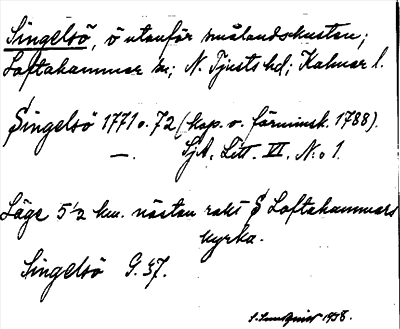 Singelsö, ö utanför smålandskusten;
Loftahammar sn; N. Tjusts hd; Kalmar l.
Singelsö 1771 o. 72 (kop. o. förminsk. 1788).
—. SjA. Litt. VI. N:o 1.
Läge 5 1/2 km. nästan rakt S Loftahammars
kyrka.
Singelsö G. 37.
1958.